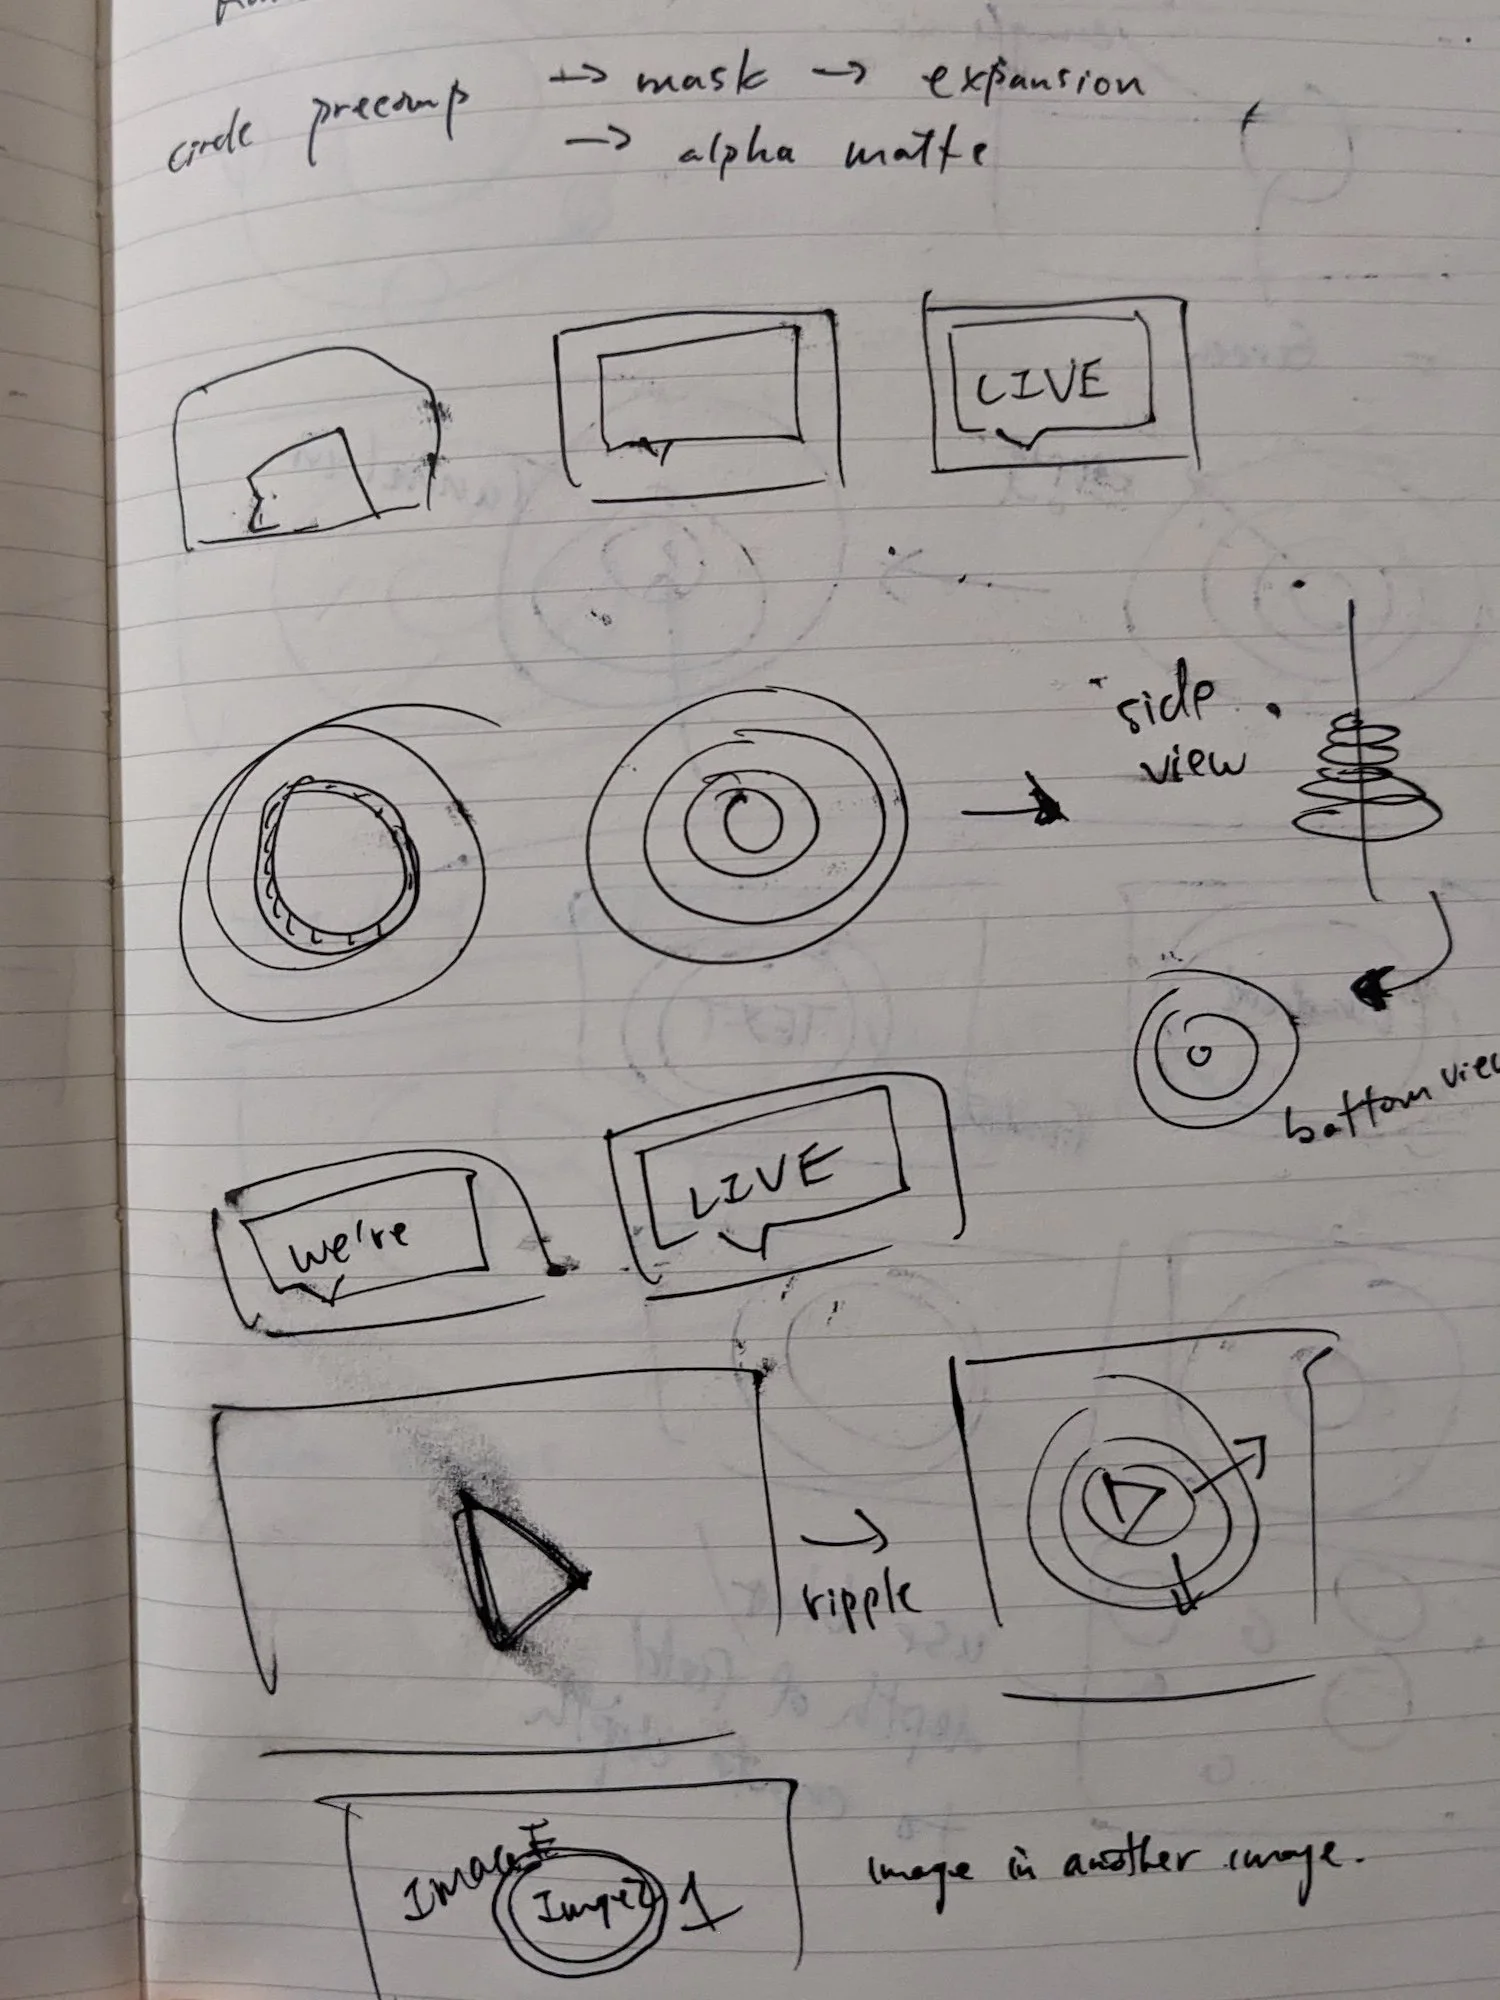 circle precomp → mask → expansion
→ alpha matte
LIVE
side
view
bottom view
we're
LIVE
→
ripple
IMAGE 1
Image 2
image in another image.